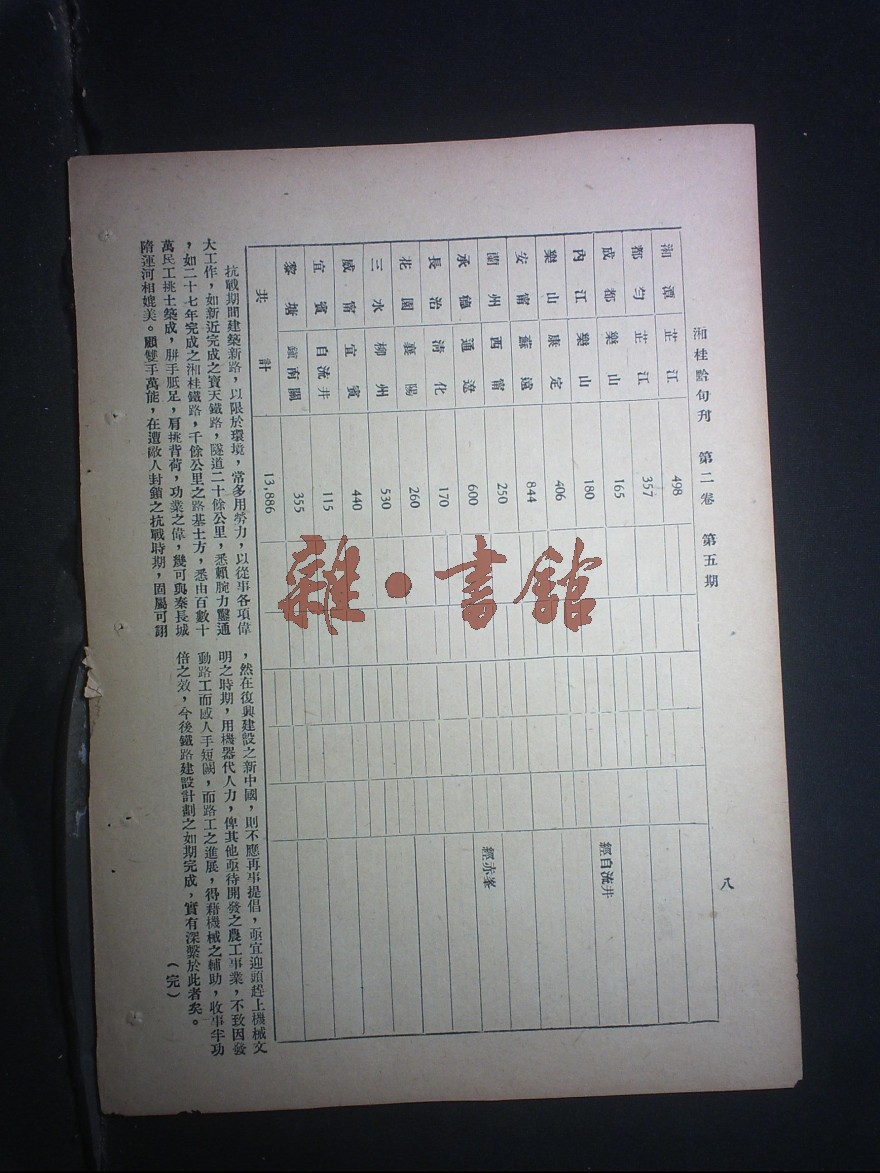 湘桂黔旬刊 第二卷 第五期 八
湘潭 芷江 498
都勻 芷江 357
成都 樂山 165
內江 樂山 180 經自流井
樂山 康定 406
安甯 蘇遠 844
蘭州 西甯 250
承德 通遼 600 經赤峯
長治 清化 170
花園 襄陽 260
三水 柳州 530
威甯 宜賓 440
宜賓 自流井 115
黎塘 鎮南關 355
共計 13,886
抗戰期間建築新路,以限於環境,常多用勞力,以從事各項偉
大工作,如新近完成之寶天鐵路,隧道二十餘公里,悉賴腕力鑿通
,如二十七年完成之湘桂鐵路,千餘公里之路基土方,悉由百數十
萬民工挑土築成,胼手胝足,肩挑背荷,功業之偉,幾可與秦長城
隋運河相媲美。顧雙手萬能,在遭敵人封鎖之抗戰時期,固屬可詡
,然在復興建設之新中國,則不應再事提倡,亟宜迎頭趕上機械文
明之時期,用機器代人力,俾其他亟待開發之農工事業,不致因發
動路工而感人手短闕,而路工之進展,得藉機械之輔助,收事半功
倍之效,今後鐵路建設計劃之如期完成,實有深繫於此者矣。
(完)
雜·書館